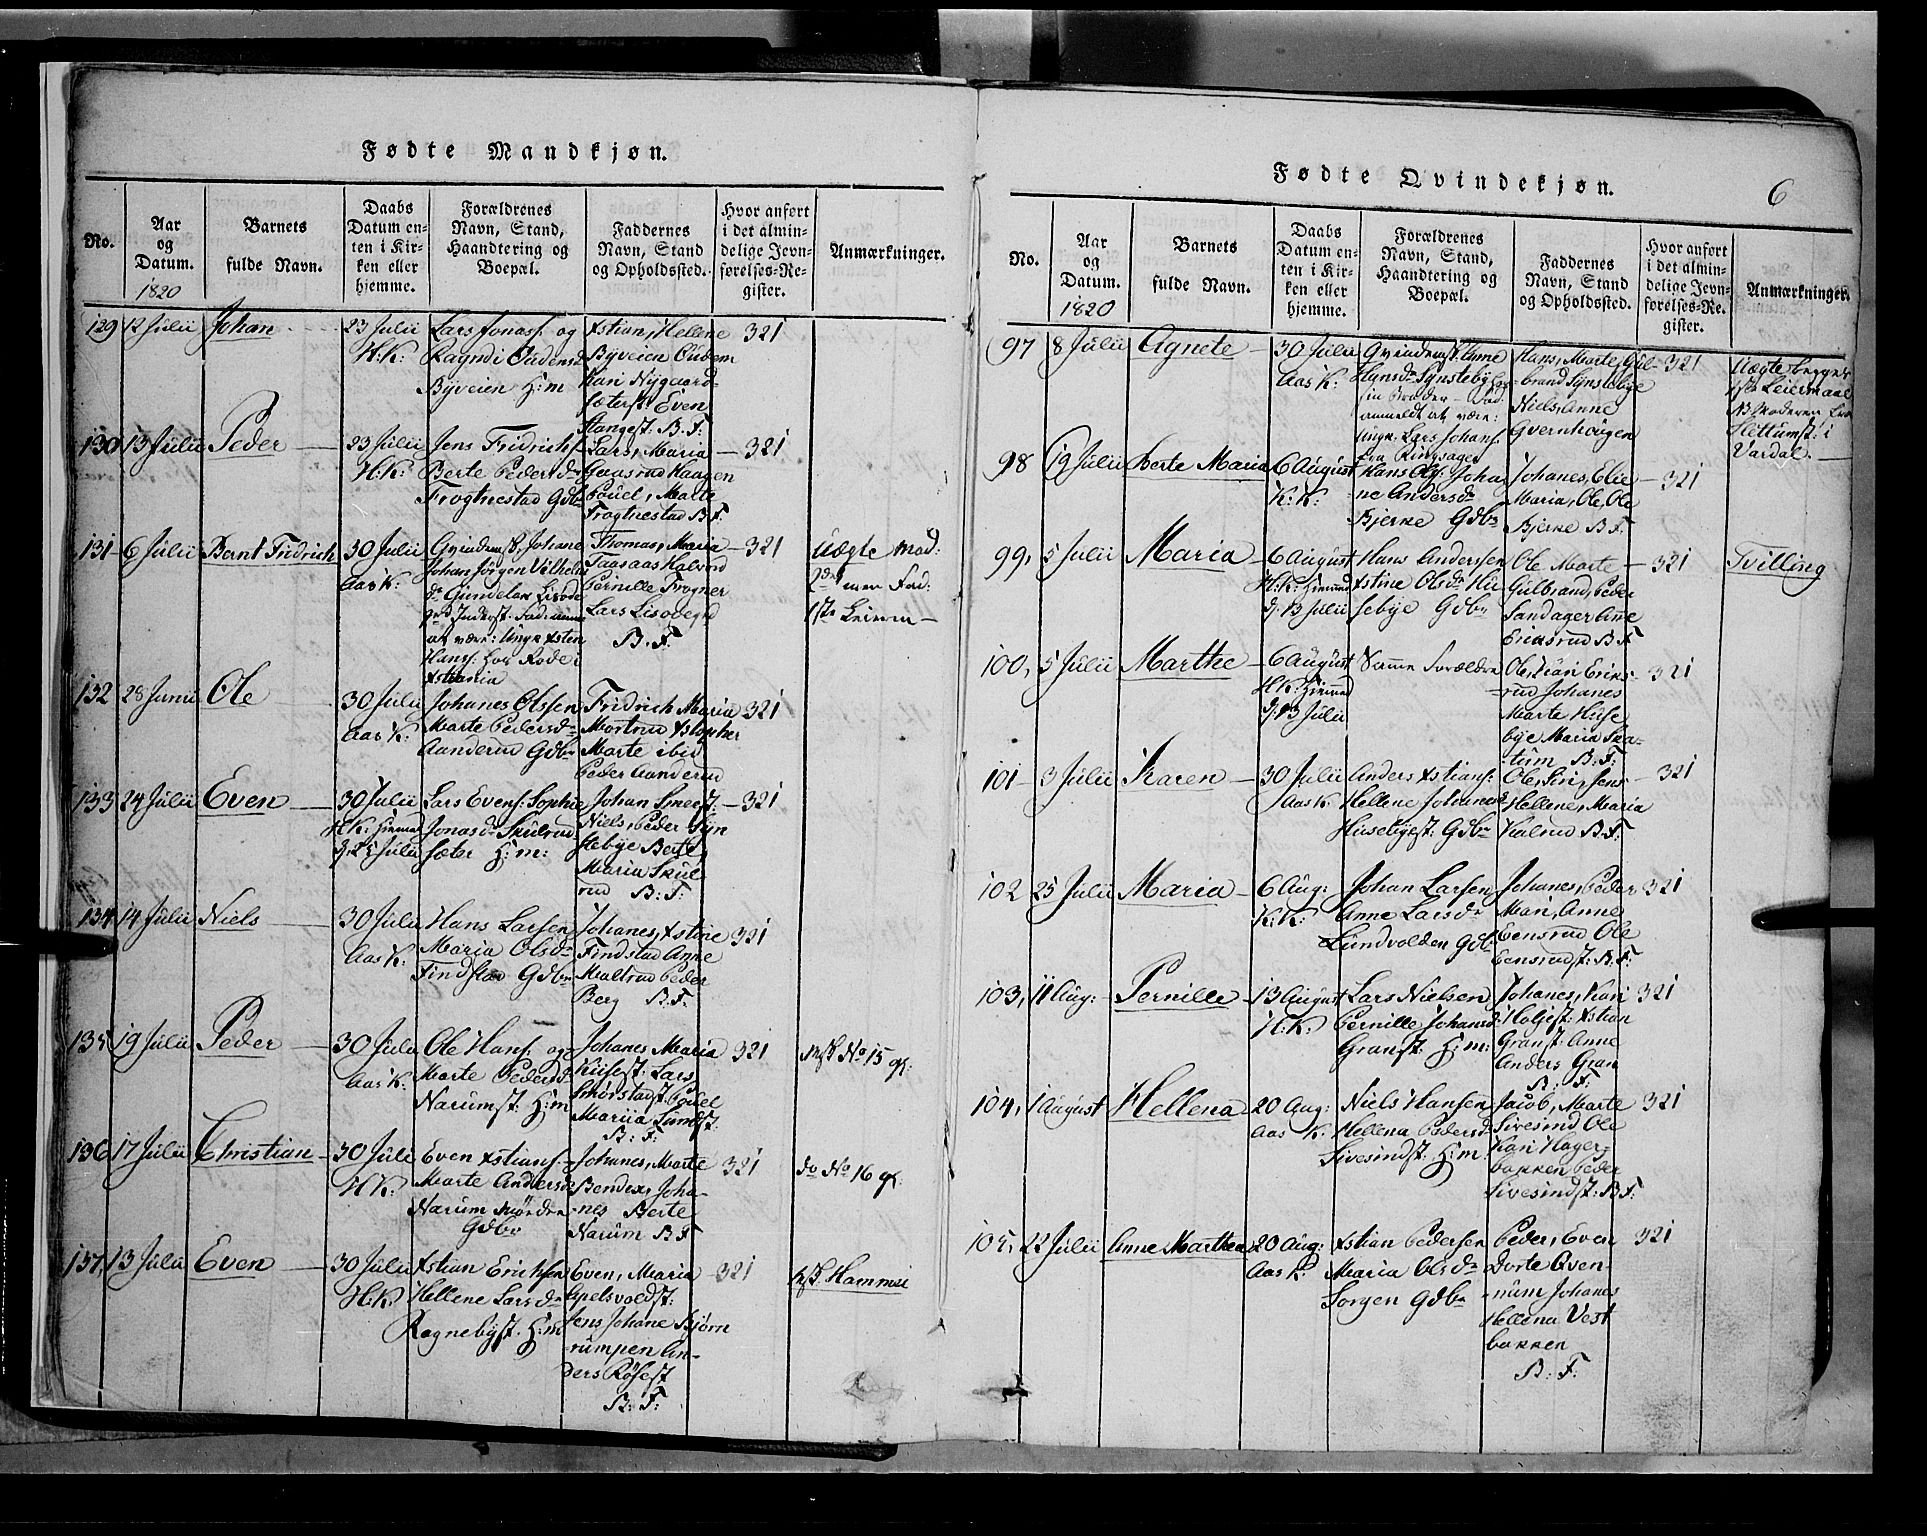 Fødte Mandkjøn.
No.
Aar
og
Datum.
1820
Barnets
fulde Navn.
Daabs
Datum en-
ten i Kir-
ken eller
hjemme.
Forældrenes
Navn, Stand,
Haandtering og
Boepæl.
Faddernes
Navn, Stand
og Opholdssted.
Hvor anført
i det almin-
delige Jevn-
førelses-Re-
gister.
Anmærkninger.
129 12 Julii Johan
23 Julii
H:K:
Lars Jonass: og
Ragndi Oudensd
Byveien H:m
Xstian, Hellene
Byveien Ouden
Kari Nygaard-
sæterst: Even
Stangest. B.F:
321
130 13 Julii Peder
23 Julii
H:K:
Jens Fridrichs:
Berte Pedersdr
Frogtnestad Gdbr
Lars, Maria
Gaasrud Haagen
Pouel, Marte
Frogtnestad B F:
321
131 6 Julii Bernt Fridrich
30 Julii
Aas K:
Qvindemst: Johane
Johan Jørgen Vilhelm
Hans: hos
Xstiania
Thomas, Maria
Taasaas Halvord
Pernille Frogner
Lars Lisodegrd
B.F.
321
Uægte mod:
2de men Fad:
1ste Leierm
132 28 Junii Ole
30 Julii
Aas K:
Johanes Olssen
Marte Pedersdr
Aanderud Gdbr
Fridrich Maria
Mortrud Xstopher
Marte ibid
Peder Aanderud
321
133 24 Julii Even
30 Julii
H:K: hiemed
d: 25 Julii
Lars Evens: Sophie
Jonasdr Skulrud
sæter H:m:
Johan Smeest:
Niels, Peder Syn
stebye Berte,
Maria Skul
rud B:F:
321
134 14 Julii Niels
30 Julii
Aas K:
Hans Larsen
Maria Olsdr
Findstad Gdbr
Johanes, Xstine
Findstad Anne
Maltrud Peder
Berg B.F:
321
135 19 Julii Peder
30 Julii
Aas K:
Ole Hans: og
Marte Pedersd
Narumst: H:m
Johanes Maria
Kusest: Lars
Smørstadst: Pouel
Mariia Lundst:
B: F:
321
No 15
136 17 Julii Christian
30 Julii
H K:
Even Xstians:
Marte Andersd
Narum Nordre
Gdbr
Johanes, Marte
Bendixe, Joha-
nes Berte
Narum B F
321
do No 16
137 13 Julii Even
30 Julii
H:K.
Xstian Erichsen
Hellene Larsdr
Ragnebyst. H:m
Even, Maria
Apelsvoldst:
Jens Johane Bjørn
rumpen An-
ders Røsest
B: F:
321
Hammel
Fødte Qvindekjøn.
6
No.
Aar
og
Datum.
1820
Barnets
fulde Navn.
Daabs
Datum en-
ten i Kir-
ken eller
hjemme.
Forældrenes
Navn, Stand,
Haandtering og
Boepæl.
Faddernes
Navn, Stand
og Opholdssted.
Hvor anført
i det almin-
delige Jevn-
førelses-Re-
gister.
Anmærkninger.
97 8 Julii Agnete
30 Julii
Aas K:
Qvindemst: Anne
Hansdr Synsteby hos
sin Broder - Fad:
anmeldt at være:
ungk: Lars Johans:
fra Ringsager
Hans, Marte, Gul-
brand Synstebye
Niels, Anne
Gvernhougen
321
Uægte begges
1ste Leiermaal
Hettumst: i
Vardal.
98 19 Julii Berte Maria
6 August
K:K:
Hans Ols: Joha
ne Andersdr
Bjerke Gdbr
Johanes, Elie
Maria, Ole, Ole
Bjerke B F:
321
99, 5 Julii Maria
6 August
H:K: hiemmed
d: 13 Julii
Hans Andersen
Xstine Olsdr Hu
sebye Gdbr
Ole Marte
Gulbrand, Peder
Sandager Anne
Ericksrud B F
321
Tvilling
100, 5 Julii Marthe
6 August
H K: hiemmed
d: 13 Julii
Samme Forældre
Ole, Kari Eriks-
rud Johanes
Marte Huse
bye Maria Ska-
tum B: F:
321
101 3 Julii Karen
30 Julii
Aas K
Anders Xstians:
Hellene Johanesd
Husebyest: Gdbr
Ole, Siri, Jens
Hellene, Maria
Kalrud B F:
321
102 25 Julii Maria
6 Aug:
K:K:
Johan Larsen
Anne Larsdr
Lundvolden Gdbr
Johanes, Peder
Mari, Anne
Eensrud Ole
Eensrudst: B:F:
321
103, 11 Aug: Pernille
13 August
H:K:
Lars Nielsen
Pernille Johansd:
Granst: H:m:
Johanes, Kari
Holjest: Xstian
Granst: Anne
Anders Gran
B: F:
321
104, 1 August Hellena
20 Aug:
Aas K:
Niels Hansen
Hellena Pedersd
Sivesindst: H:m:
Jacob, Marte
Sivesind Ole
Kari Hager-
bakken Peder
Sivesindst: B F:
321
105, 22 Julii Anne Marthea
20 Aug:
Aas K:
Xstian Pedersen
Maria Olsdr
Sorgen Gdbr
Peder, Even
Dorte Qven-
num Johanes
Hellena Vest
bakken
B: F:
321